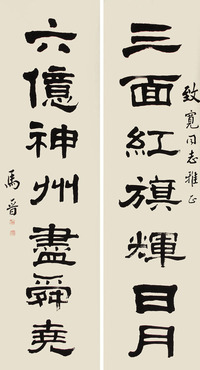 三面紅旗輝日月
致寬同志雅正
六億神州盡舜堯
馬晉